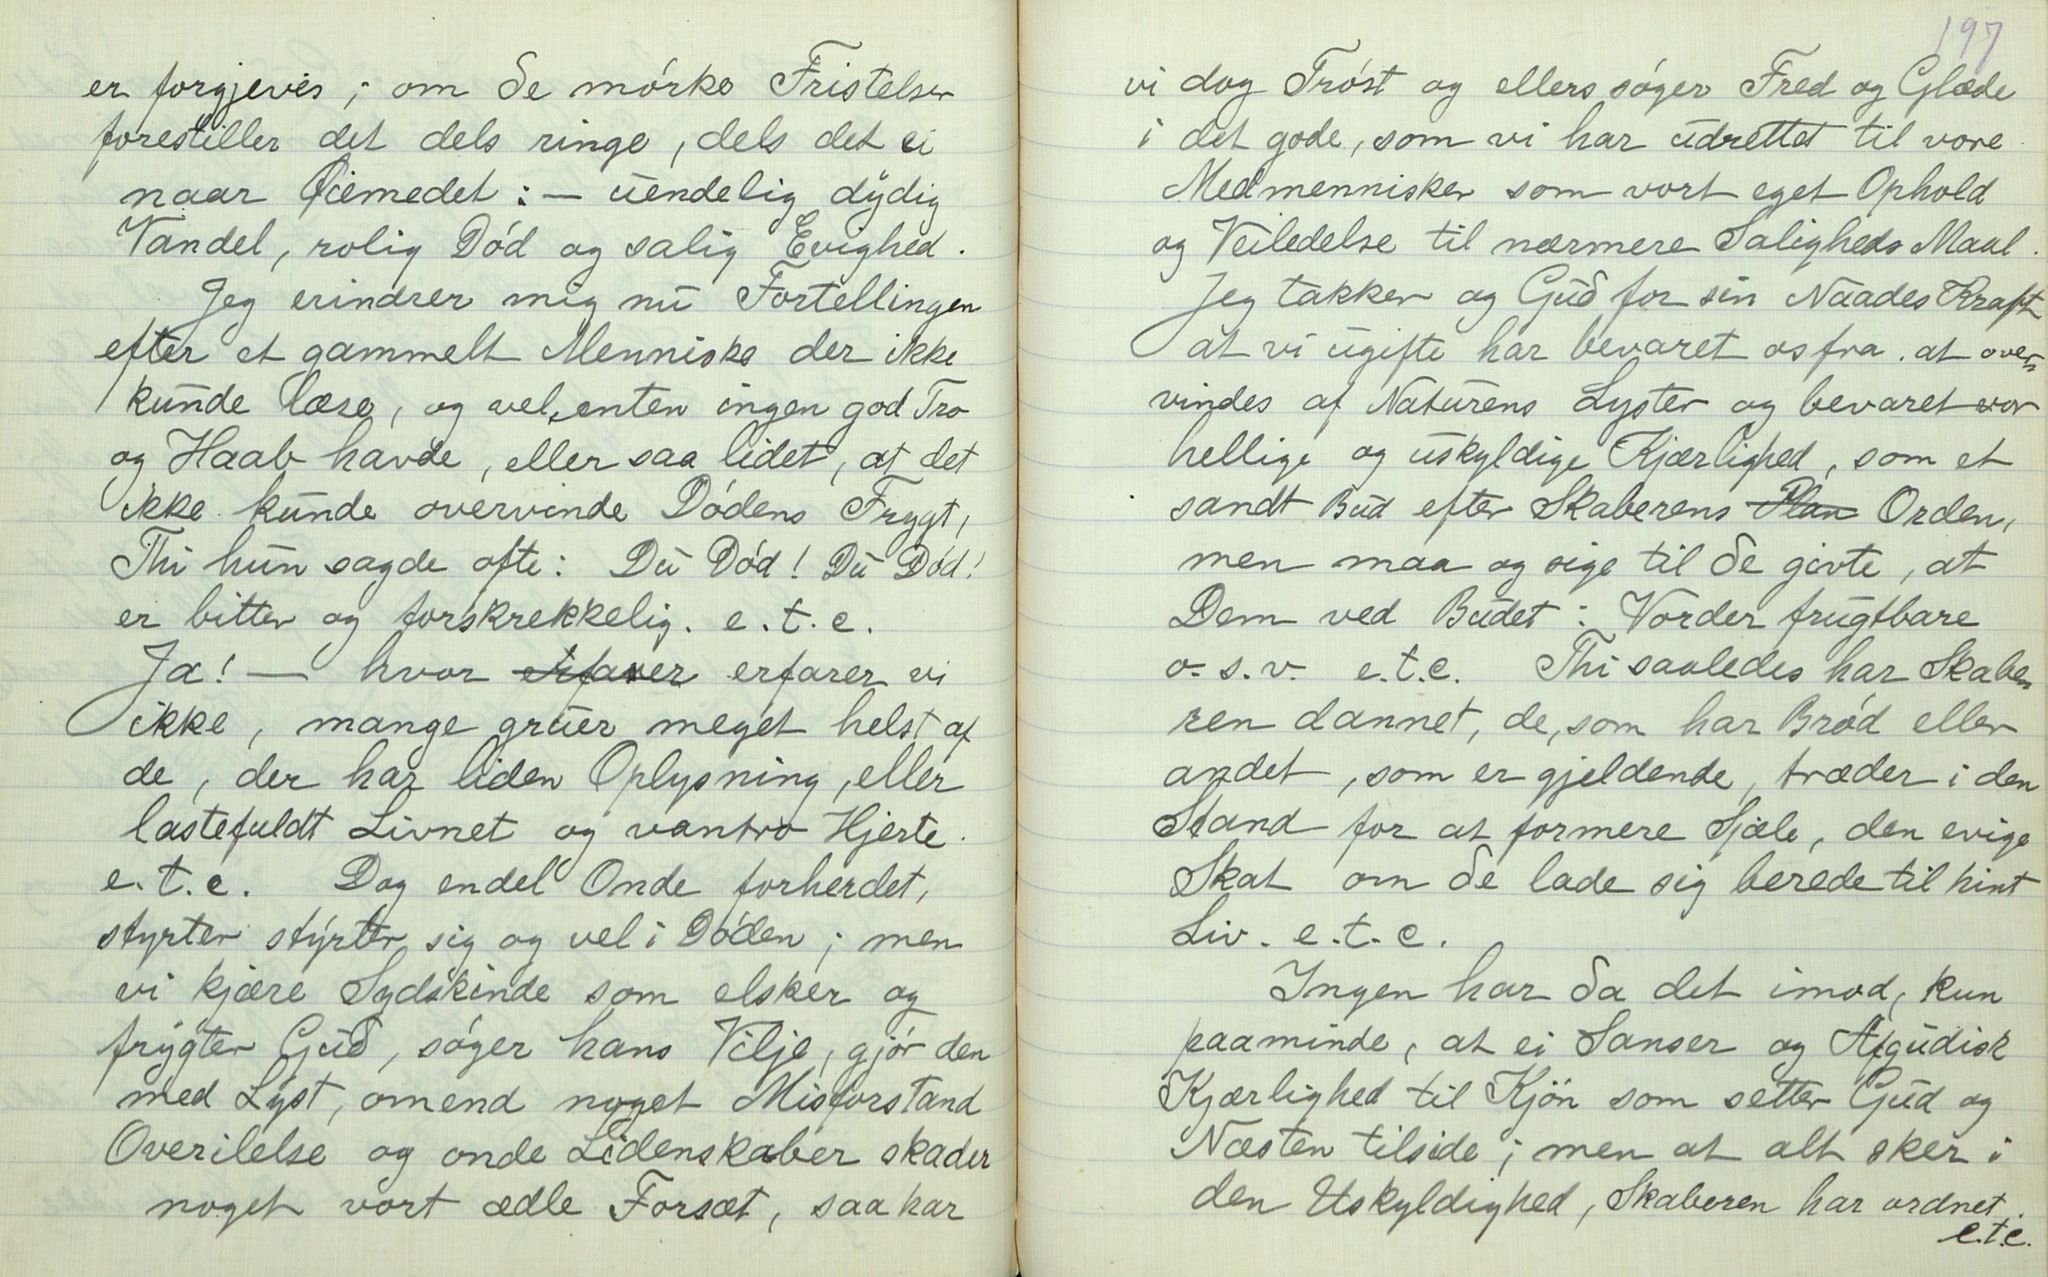 er forgjeves; om de mörke Fristelser
forestiller det dels ringe, dels det ei
naar Öiemedet: — uendelig dydig
Vandel, rolig Död og salig Evighed.
Jeg erindrer mig nu Fortellingen
efter et gammelt Menniske der ikke
kunde læse, og vel, enten ingen god Tro
og Haab havde, eller saa lidet, at det
ikke kunde overvinde Dödens Frygt,
Thi hun sagde ofte: Du Död! Du Död!
er bitter og forskrekkelig. e.t.c.
Ja! — hvor erfarer erfarer vi
ikke, mange gruer meget helst af
de, der har liden Oplysning, eller
lastefuldt Livnet og vantro Hjerte.
e.t.c. Dog endel Onde forherdet,
styrter styrter sig og vel i Döden; men
vi kjære Sydskinde som elsker og
frygter Gud, söger hans Vilje, gjör den
med Lyst, omend noget Misforstand
Overilelse og onde Lidenskaber skader
noget vort ædle Forsæt, saa har
197
vi dog Tröst og ellers söger Fred og Glæde
i det gode, som vi har udrettet til vore
Medmennisker som vort eget Ophold
og Veiledelse til nærmere Saligheds Maal.
Jeg takker og Gud for sin Naades Kraft
at vi ugifte har bevaret os fra at over-
vindes af Naturens Lyster og bevaret vor
hellige og uskyldige Kjærlighed, som et
sandt Bud efter Skaberens Plan Orden,
men maa og sige til de givte, at
Dem ved Budet: Vorder frugtbare
o.s.v. e.t.c. Thi saaledes har Skabe-
ren dannet, de, som har Bröd eller
andet, som er gjeldende, træder i den
Stand for at formere Sjæle, den evige
Skat om de lade sig berede til hint
Liv. e.t.c.
Ingen har da det imod, kun
paaminde, at ei Sanser og Afgudisk
Kjærlighed til Kjön som setter Gud og
Næsten tilside; men at alt sker i
den Uskyldighed, Skaberen har ordnet.
e.t.c.